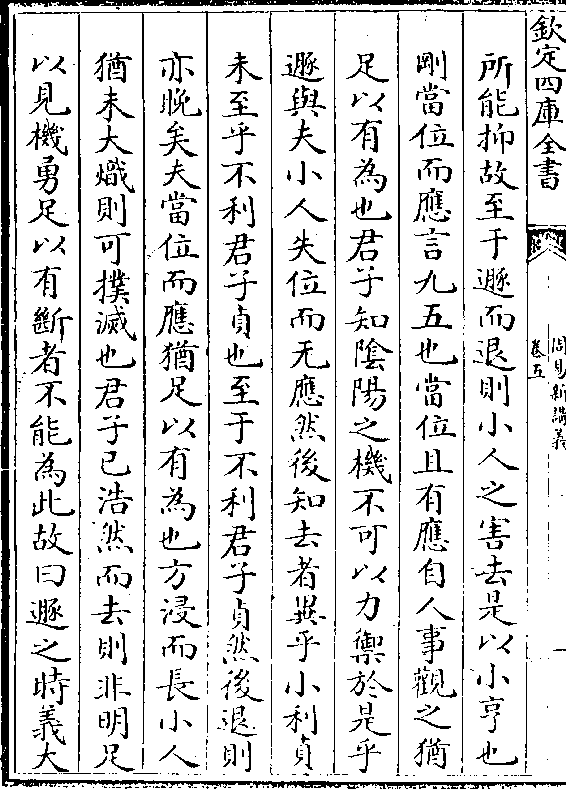 欽定四庫全書
周易新講義
卷五
所能抑故至于遯而退則小人之害去是以小亨也
剛當位而應言九五也當位且有應自人事觀之猶
足以有為也君子知隂陽之機不可以力禦於是乎
遯與夫小人失位而无應然後知去者異乎小利貞
未至乎不利君子貞也至于不利君子貞然後退則
亦晚矣夫當位而應猶足以有為也方浸而長小人
猶未大熾則可撲滅也君子已浩然而去則非明足
以見機勇足以有斷者不能為此故曰遯之時義大